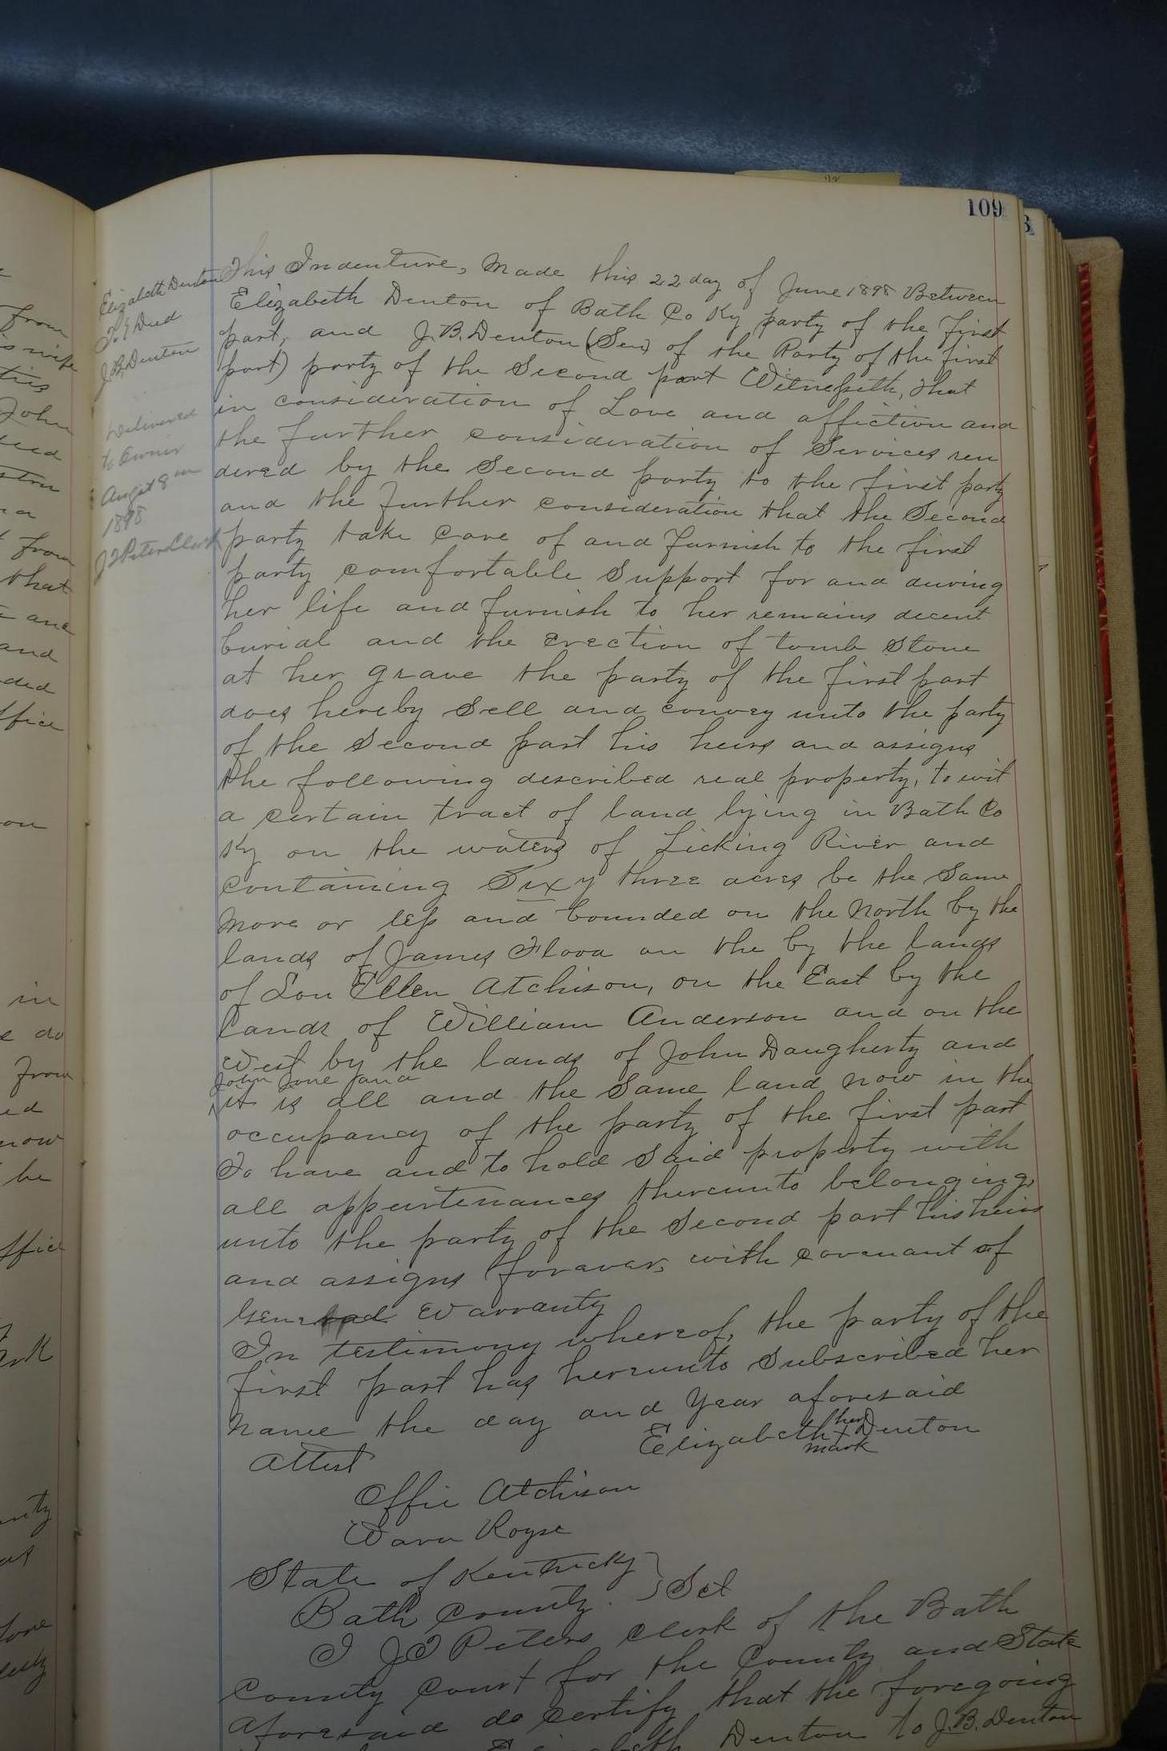 109
Elizabeth Denton
To } Deed
J.B. Denton
Delivered
to owner
August 8th
1898
J J Peters Clerk
This Indenture, Made this 22 day of June 1898 Between
Elizabeth Denton of Bath Co Ky party of the first
part, and J.B. Denton (Son of the Party of the first
part) party of the Second part Witnesseth, that
in consideration of Love and affiction and
the further consideration of Services ren
dered by the Second party to the first party
and the further consideration that the Second
party take care of and furnish to the first
party comfortable Support for and during
her life and furnish to her remains decent
burial and the erection of tomb Stone
at her grave the party of the first part
does hereby Sell and convey unto the party
of the Second part his heirs and assigns
the following described real property, to wit
a certain tract of land lying in Bath Co
Ky on the waters of Licking River and
containing Sixy three acres be the Same
more or less and bounded on the North by the
lands of James Flood on the by the lands
of Lou Ellen Atchison, on the East by the
lands of William Anderson and on the
West by the lands of John Daugherty and
John Jones land
it is all and the Same land now in the
occupancy of the party of the first part
To have and to hold Said property with
all appurtenances thereunto belonging,
unto the party of the Second part his heirs
and assigns forever, with covenant of
General Warranty
In testimony whereof, the party of the
first part has hereunto Subscribed her
name the day and year aforesaid
Elizabeth her Denton
mark
Attest
Effie Atchison
Royse
State of Kentucky }
Bath County. } Sct
I J J Peters clerk of the Bath
County Court for the County and State
aforesaid do certify that the foregoing
Elizabeth Denton to J.B. Denton